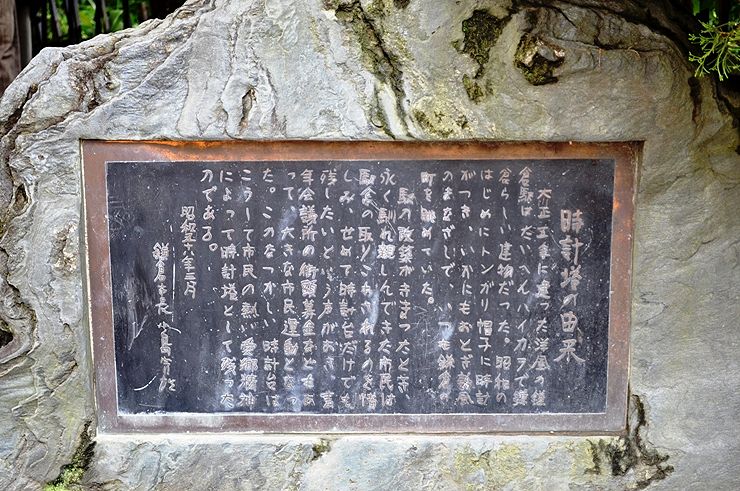 時計塔の由来
大正五年に建った洋風の鎌
倉駅はたいへんハイカラで鎌
倉らしい建物だった。昭和の
はじめにトンガリ帽子に時計
がつき、いかにもおとぎ
のまなざしで、いつも鎌倉の
町を眺めていた。
駅の改築がきまったとき、
永く馴れ親しんできた市民は
駅舎の取りこわされるのを惜
しみ、せめて時計台だけでも
残したいという声がおき、青
年会議所の街頭募金などもあ
って、大きな市民運動となっ
た。このなつかしい時計台は
こうして市民の熱い愛郷精神
によって時計塔として残った
のである。
昭和五八年三月
鎌倉市長